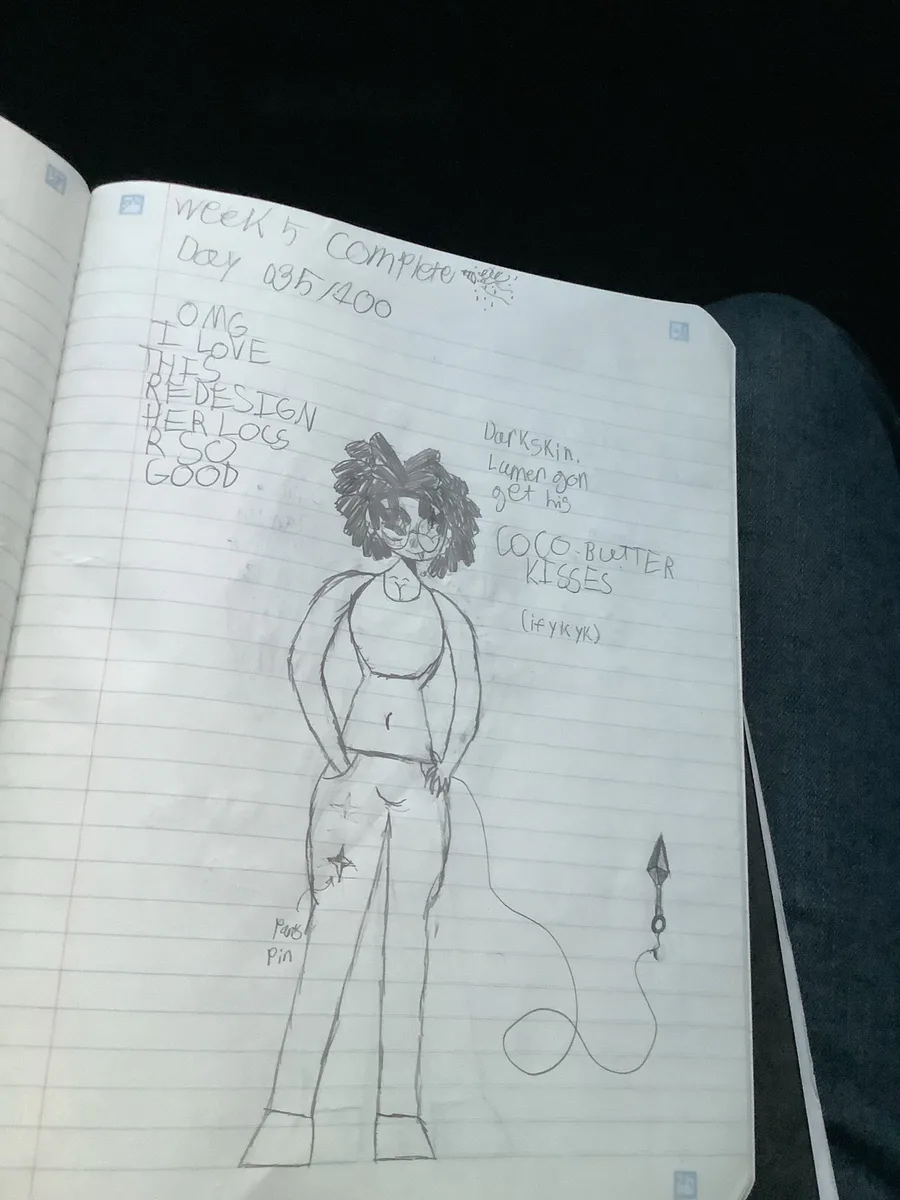 Week 5 Complete
Day 035/400
OMG
I LOVE
THIS
REDESIGN
HER LOCS
R SO
GOOD
Darkskin.
Lumen gon
get his
COCO-BUTTER
KISSES
(ifykyk)
Pants
Pin